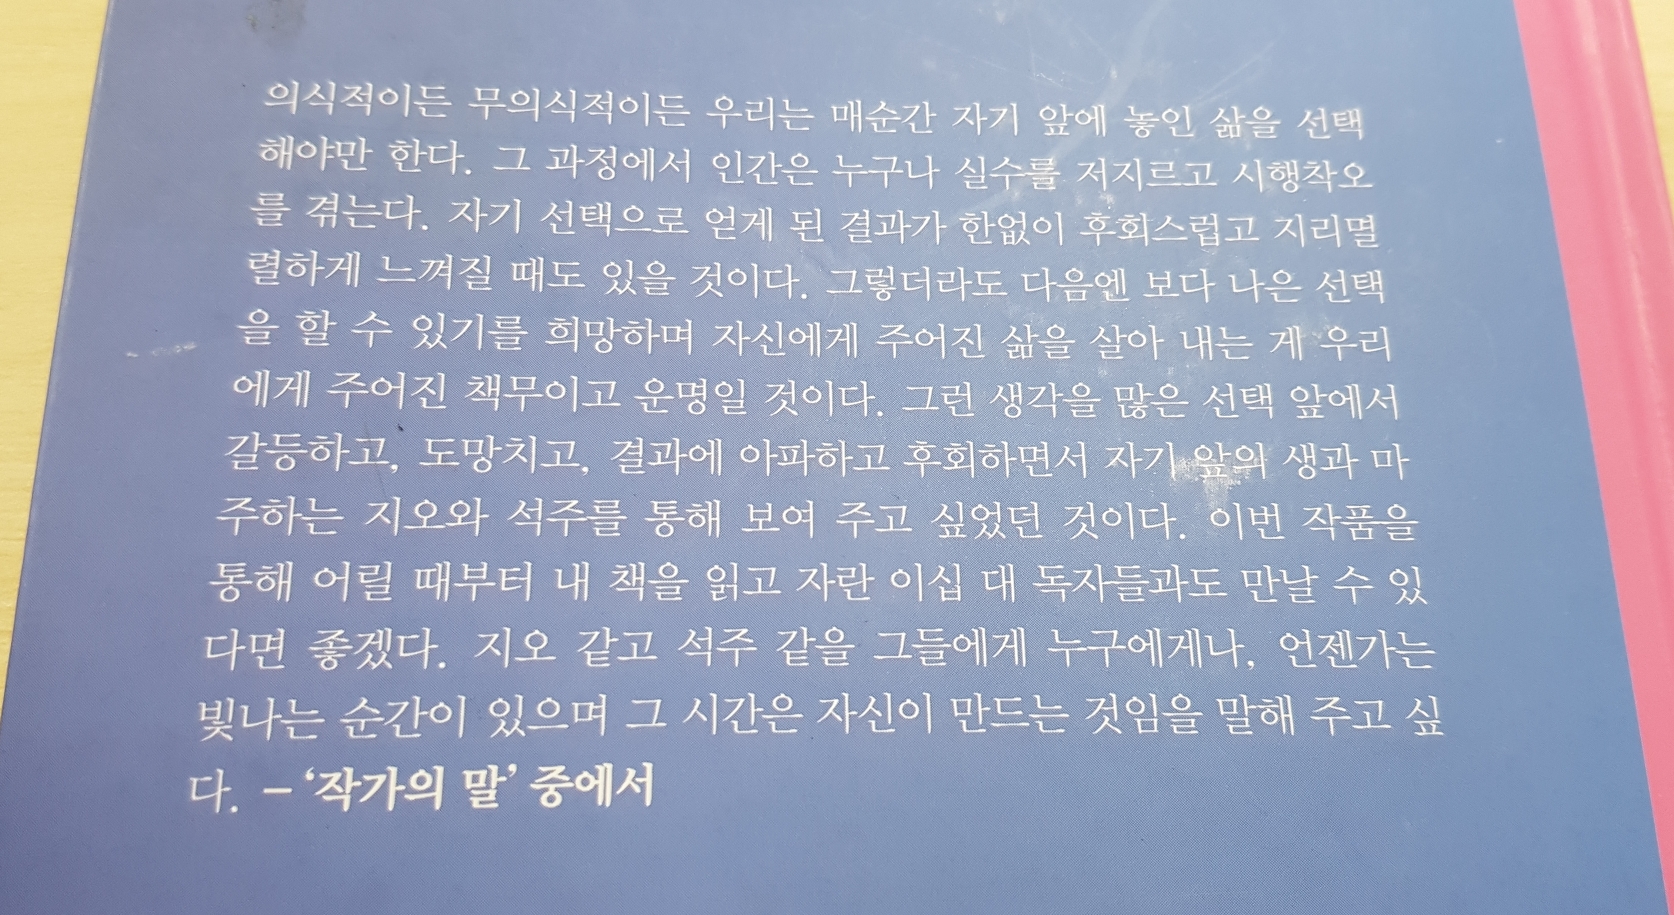 의식적이든 무의식적이든 우리는 매순간 자기 앞에 놓인 삶을 선택
해야만 한다. 그 과정에서 인간은 누구나 실수를 저지르고 시행착오
를 겪는다. 자기 선택으로 얻게 된 결과가 한없이 후회스럽고 지리멸
렬하게 느껴질 때도 있을 것이다. 그렇더라도 다음엔 보다 나은 선택
을 할 수 있기를 희망하며 자신에게 주어진 삶을 살아 내는 게 우리
에게 주어진 책무이고 운명일 것이다. 그런 생각을 많은 선택 앞에서
갈등하고, 도망치고, 결과에 아파하고 후회하면서 자기 앞의 생과 마
주하는 지오와 석주를 통해 보여 주고 싶었던 것이다. 이번 작품을
통해 어릴 때부터 내 책을 읽고 자란 이십 대 독자들과도 만날 수 있
다면 좋겠다. 지오 같고 석주 같을 그들에게 누구에게나, 언젠가는
빛나는 순간이 있으며 그 시간은 자신이 만드는 것임을 말해 주고 싶
다. – ‘작가의 말’ 중에서